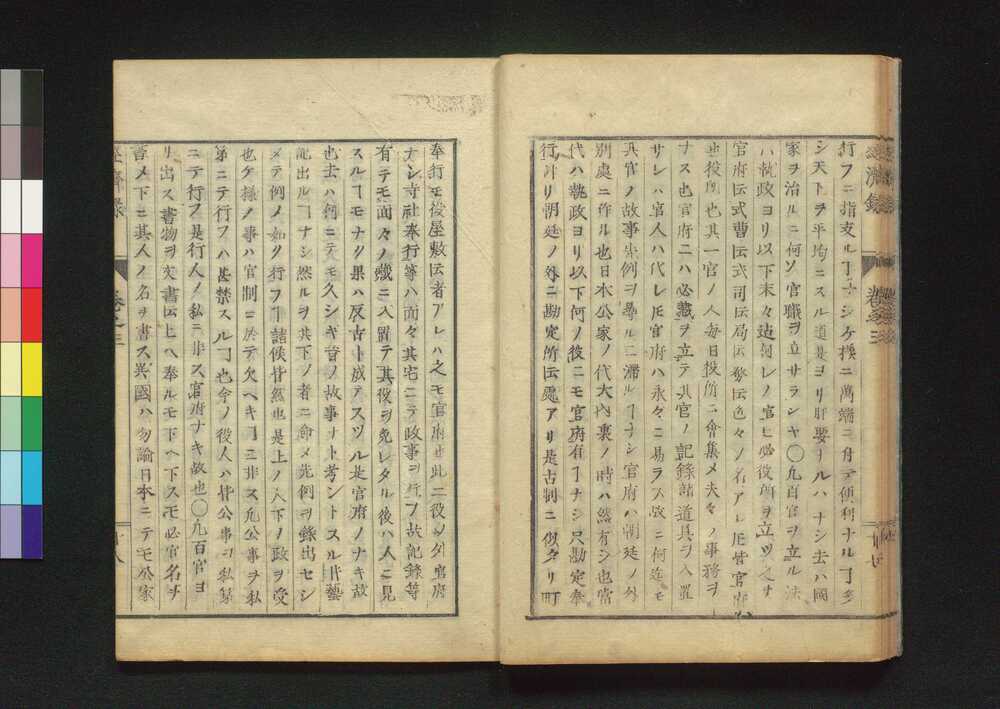 行フニ指支ル丁ナシケ様ニ萬端ニ舟テ便利ナル丁多
シ天下ヲ平均ニスル道是ヨリ肝要ナルハナシ去ハ國
家ヲ治ルニ何ソ官職ヲ立サランヤ〇凡百官ヲ立ル法
ハ執政ヨリ以下末々迠何レノ官ニモ必役所ヲ立ツ之ヲ
官府ト云式曹ト云式司ト云局ト云 ト云色々ノ名アレ𪜈皆官府
ハ役所也其一官ノ人毎日役所ニ會集メ夫々ノ事務ヲ
ナス也官府ニハ必藏ヲ立テ其官ノ記録諸道具ヲ入置
サレハ官人ハ代レ𪜈官府ハ永々ニ易ラス故ニ何迠モ
其官ノ故事 例ヲ尋ルニ滞ル丁ナシ官府ハ朝廷ノ外
別處ニ作ル也日本公家ノ代大内裏ノ時ハ然有シ也當
代ハ執政ヨリ以下何ノ役ニモ官府有丁ナシ只勘定奉
行計リ朝廷ノ外ニ勘定所ト云處アリ是古制ニ似タリ町
經濟録
巻之三
十七
奉行モ役屋敷ト云者アレハ之モ官府也此二役ノ外官府
ナシ寺社奉行等ハ面々其宅ニテ政事ヲ行フ故記録等
有テモ面々ノ藏ニ入置テ其役ヲ免レタル後ハ人ニ見
スル丁モナク果ハ反古ト成テスツル是官府ノナキ故
也去ハ何ニテモ久シキ昔ノ故事ナト考ントスル𪜈藝
記出ル丁ナシ然ルヲ其下ノ者ニ命メ先例ヲ録出セシ
メテ例ノ如ク行フ丁諸侯皆然也是上ノ人下ノ政ヲ受
也ケ様ノ事ハ官制ニ於テ欠ヘキ丁ニ非ス凡公事ヲ私
第ニテ行フハ甚禁スル丁也今ノ役人ハ皆公事ヲ私第
ニテ行フ是行人ノ私ニ非ス官府ナキ故也〇凡百官ヨ
リ出ス書物ヲ文書ト云上ヘ奉ルモ下ヘ下スモ必官名ヲ
書メ下ニ其人ノ名ヲ書ス異國ハ勿論日本ニテモ公家
經濟録
巻之三
十八